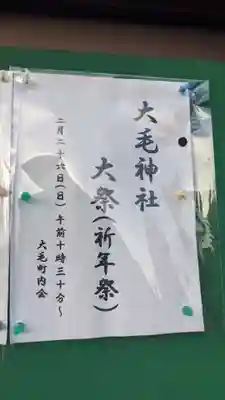 大毛神社
大祭(祈年祭)
二月二十六日(日)午前十時三十分~
大毛町内会